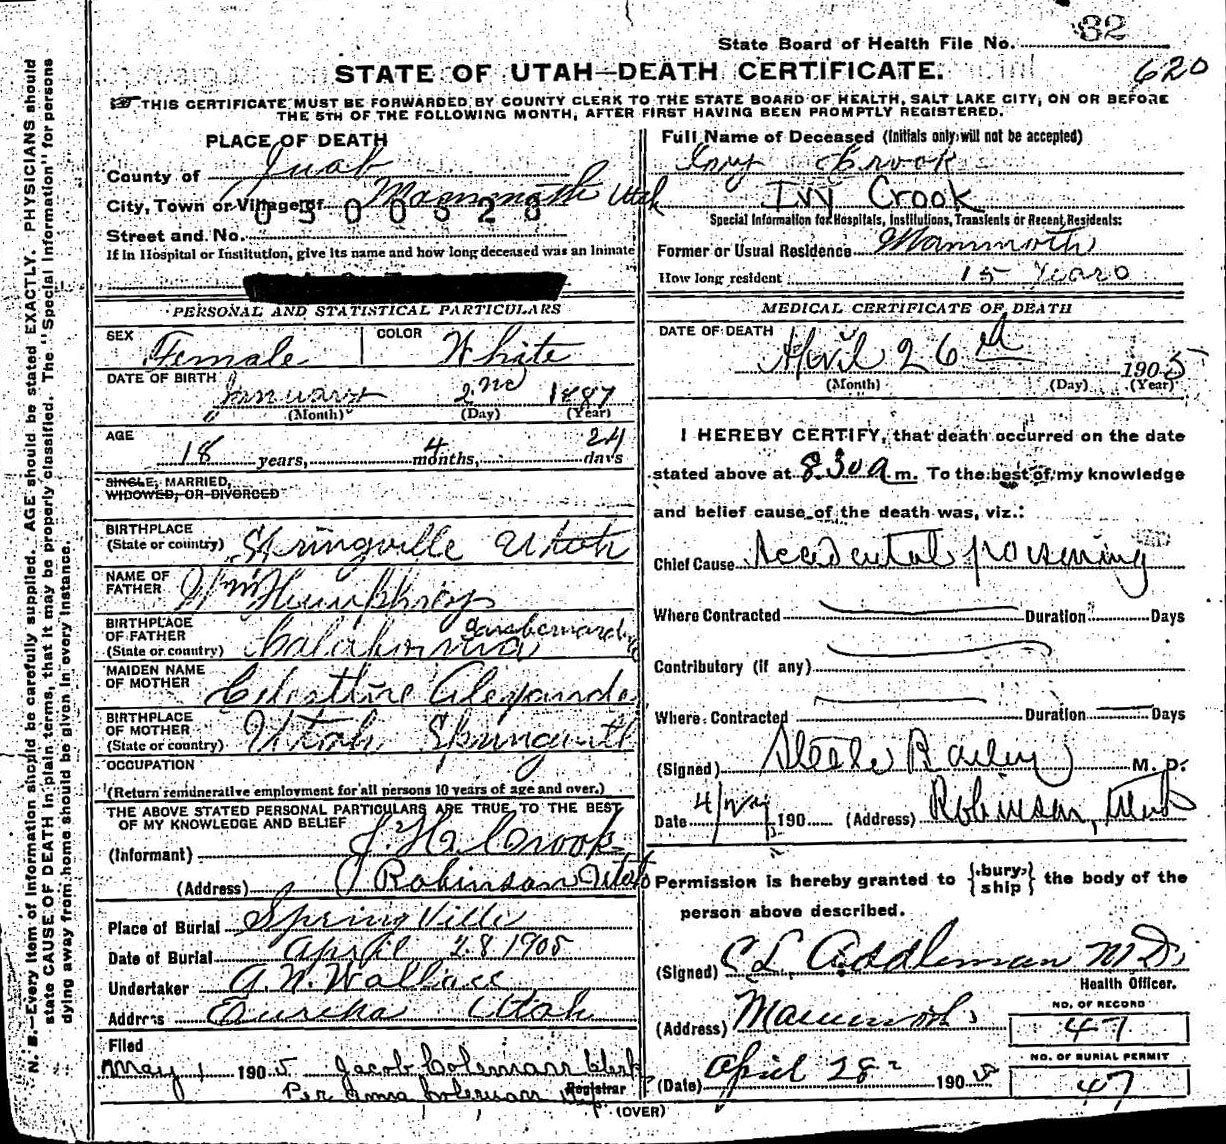 State Board of Health File No. 82
620
STATE OF UTAH—DEATH CERTIFICATE.
THIS CERTIFICATE MUST BE FORWARDED BY COUNTY CLERK TO THE STATE BOARD OF HEALTH, SALT LAKE CITY, ON OR BEFORE
THE 5TH OF THE FOLLOWING MONTH, AFTER FIRST HAVING BEEN PROMPTLY REGISTERED.
N. B.—Every item of information should be carefully supplied. AGE should be stated EXACTLY. PHYSICIANS should
state CAUSE OF DEATH in plain terms, that it may be properly classified. The "Special Information" for persons
dying away from home should be given in every instance.
PLACE OF DEATH
County of Juab
City, Town or Village of Mammoth Utah
0500528
Street and No.
If in Hospital or Institution, give its name and how long deceased was an inmate
PERSONAL AND STATISTICAL PARTICULARS
SEX Female COLOR White
DATE OF BIRTH January 2nd 1887
(Month) (Day) (Year)
AGE
18 years, 4 months, 24 days
SINGLE, MARRIED,
WIDOWED, OR DIVORCED
BIRTHPLACE
(State or country) Springville Utah
NAME OF
FATHER Wm Humphrey
BIRTHPLACE
OF FATHER
(State or country) California
MAIDEN NAME
OF MOTHER Celestine Alexande
BIRTHPLACE
OF MOTHER
(State or country) Utah Springvill
OCCUPATION
(Return remunerative employment for all persons 10 years of age and over.)
THE ABOVE STATED PERSONAL PARTICULARS ARE TRUE TO THE BEST
OF MY KNOWLEDGE AND BELIEF
(Informant) J. H. Crook
(Address) Robinson Utah
Place of Burial Springville
Date of Burial April 28 1905
Undertaker A. N. Wallace
Address Eureka Utah
Filed
May 1 1905. Jacob Coleman Clerk
Per Anna Coleman Registrar
(OVER)
Full Name of Deceased (Initials only will not be accepted)
Ivy Crook
Ivy Crook
Special Information for Hospitals, Institutions, Transients or Recent Residents:
Former or Usual Residence Mammoth
How long resident 15 Years
MEDICAL CERTIFICATE OF DEATH
DATE OF DEATH
April 26th 1905
(Month) (Day) (Year)
I HEREBY CERTIFY, that death occurred on the date
stated above at 8.30 a.m. To the best of my knowledge
and belief cause of the death was, viz.:
Chief Cause Accidental poisening
Where Contracted Duration Days
Contributory (if any)
Where Contracted Duration Days
(Signed) Steele Bailey M. D.
Date 4/27 190 (Address) Robinson, Utah
Permission is hereby granted to {bury ship} the body of the
person above described.
(Signed) C L Addleman M D.
Health Officer.
(Address) Mammoth
NO. OF RECORD
47
(Date) April 28 1905
NO. OF BURIAL PERMIT
47